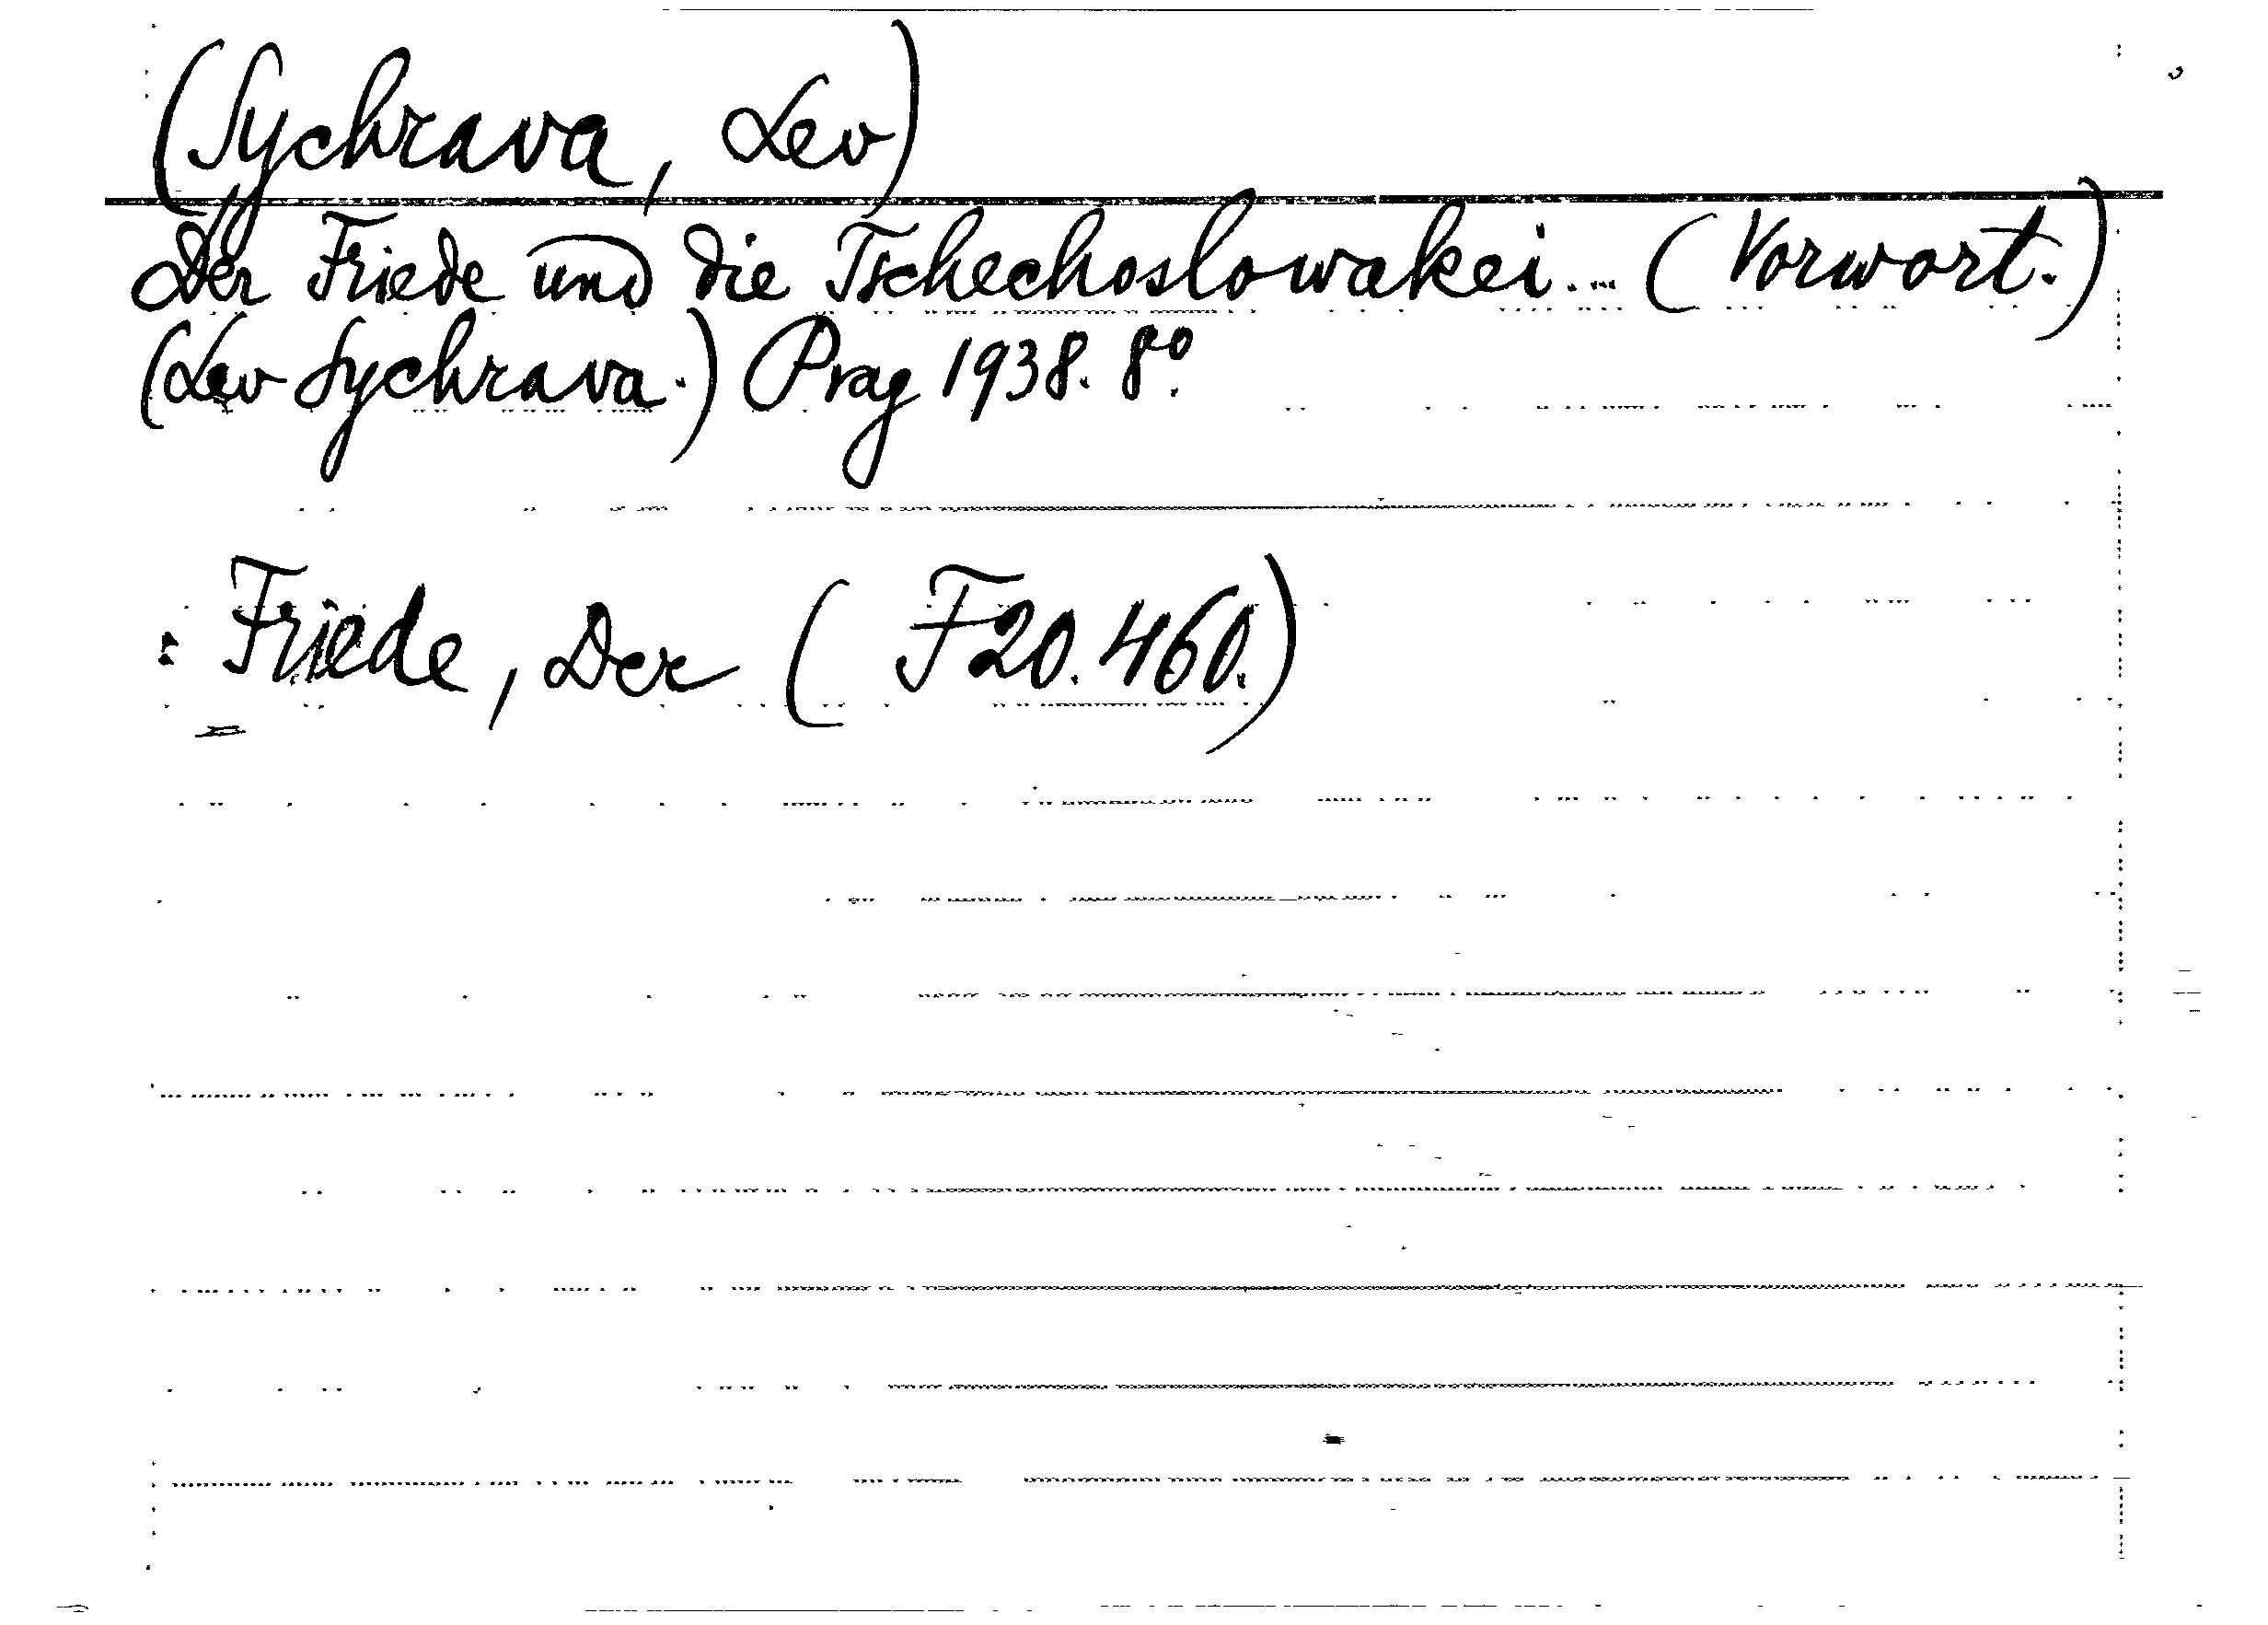 (Sychrava, Lev)
Der Friede und die Tschechoslowakei... (Vorwort.)
(Lev Sychrava.) Prag 1938. 8°.
: Friede, Der (F20.460.)